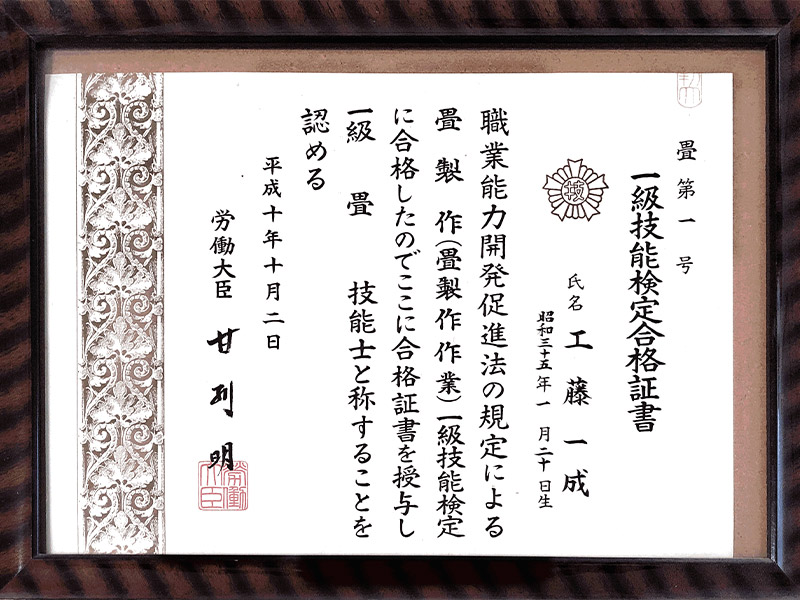 畳第一号
一級技能検定合格証書
技
氏名 工藤一成
昭和三十五年一月二十日生
職業能力開発促進法の規定による
畳製作(畳製作作業)一級技能検定
に合格したのでここに合格証書を授与し
一級 畳 技能士と称することを
認める
平成十年十月二日
労働大臣 甘利明
労働大臣